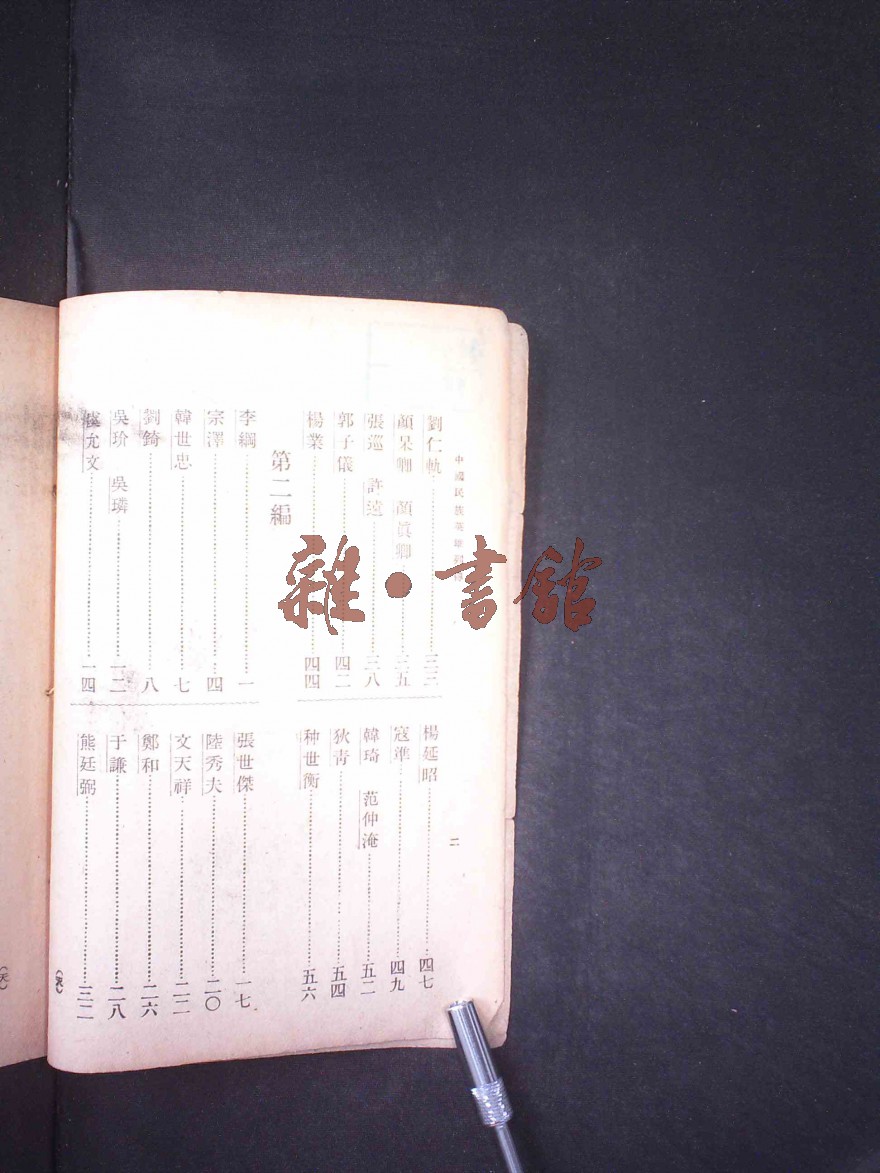 中國民族英雄列傳
二
劉仁軌 三三
顏杲卿 顏眞卿 三五
張巡 許遠 三八
郭子儀 四二
楊業 四四
楊延昭 四七
寇準 四九
韓琦 范仲淹 五二
狄青 五四
种世衡 五六
第二編
李綱 一
宗澤 四
韓世忠 七
劉錡 八
吳玠 吳璘 一二
虞允文 一四
張世傑 一七
陸秀夫 二〇
文天祥 二二
鄭和 二六
于謙 二八
熊廷弼 三二
雜·書館